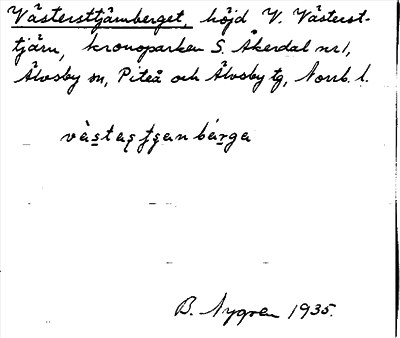 Västersttjärnberget, höjd V. Västerst-
tjärn, kronoparken S. Åkerdal nr 1,
Älvsby sn, Piteå och Älvsby tg, Norrb. l.
B. Nygren 1935.